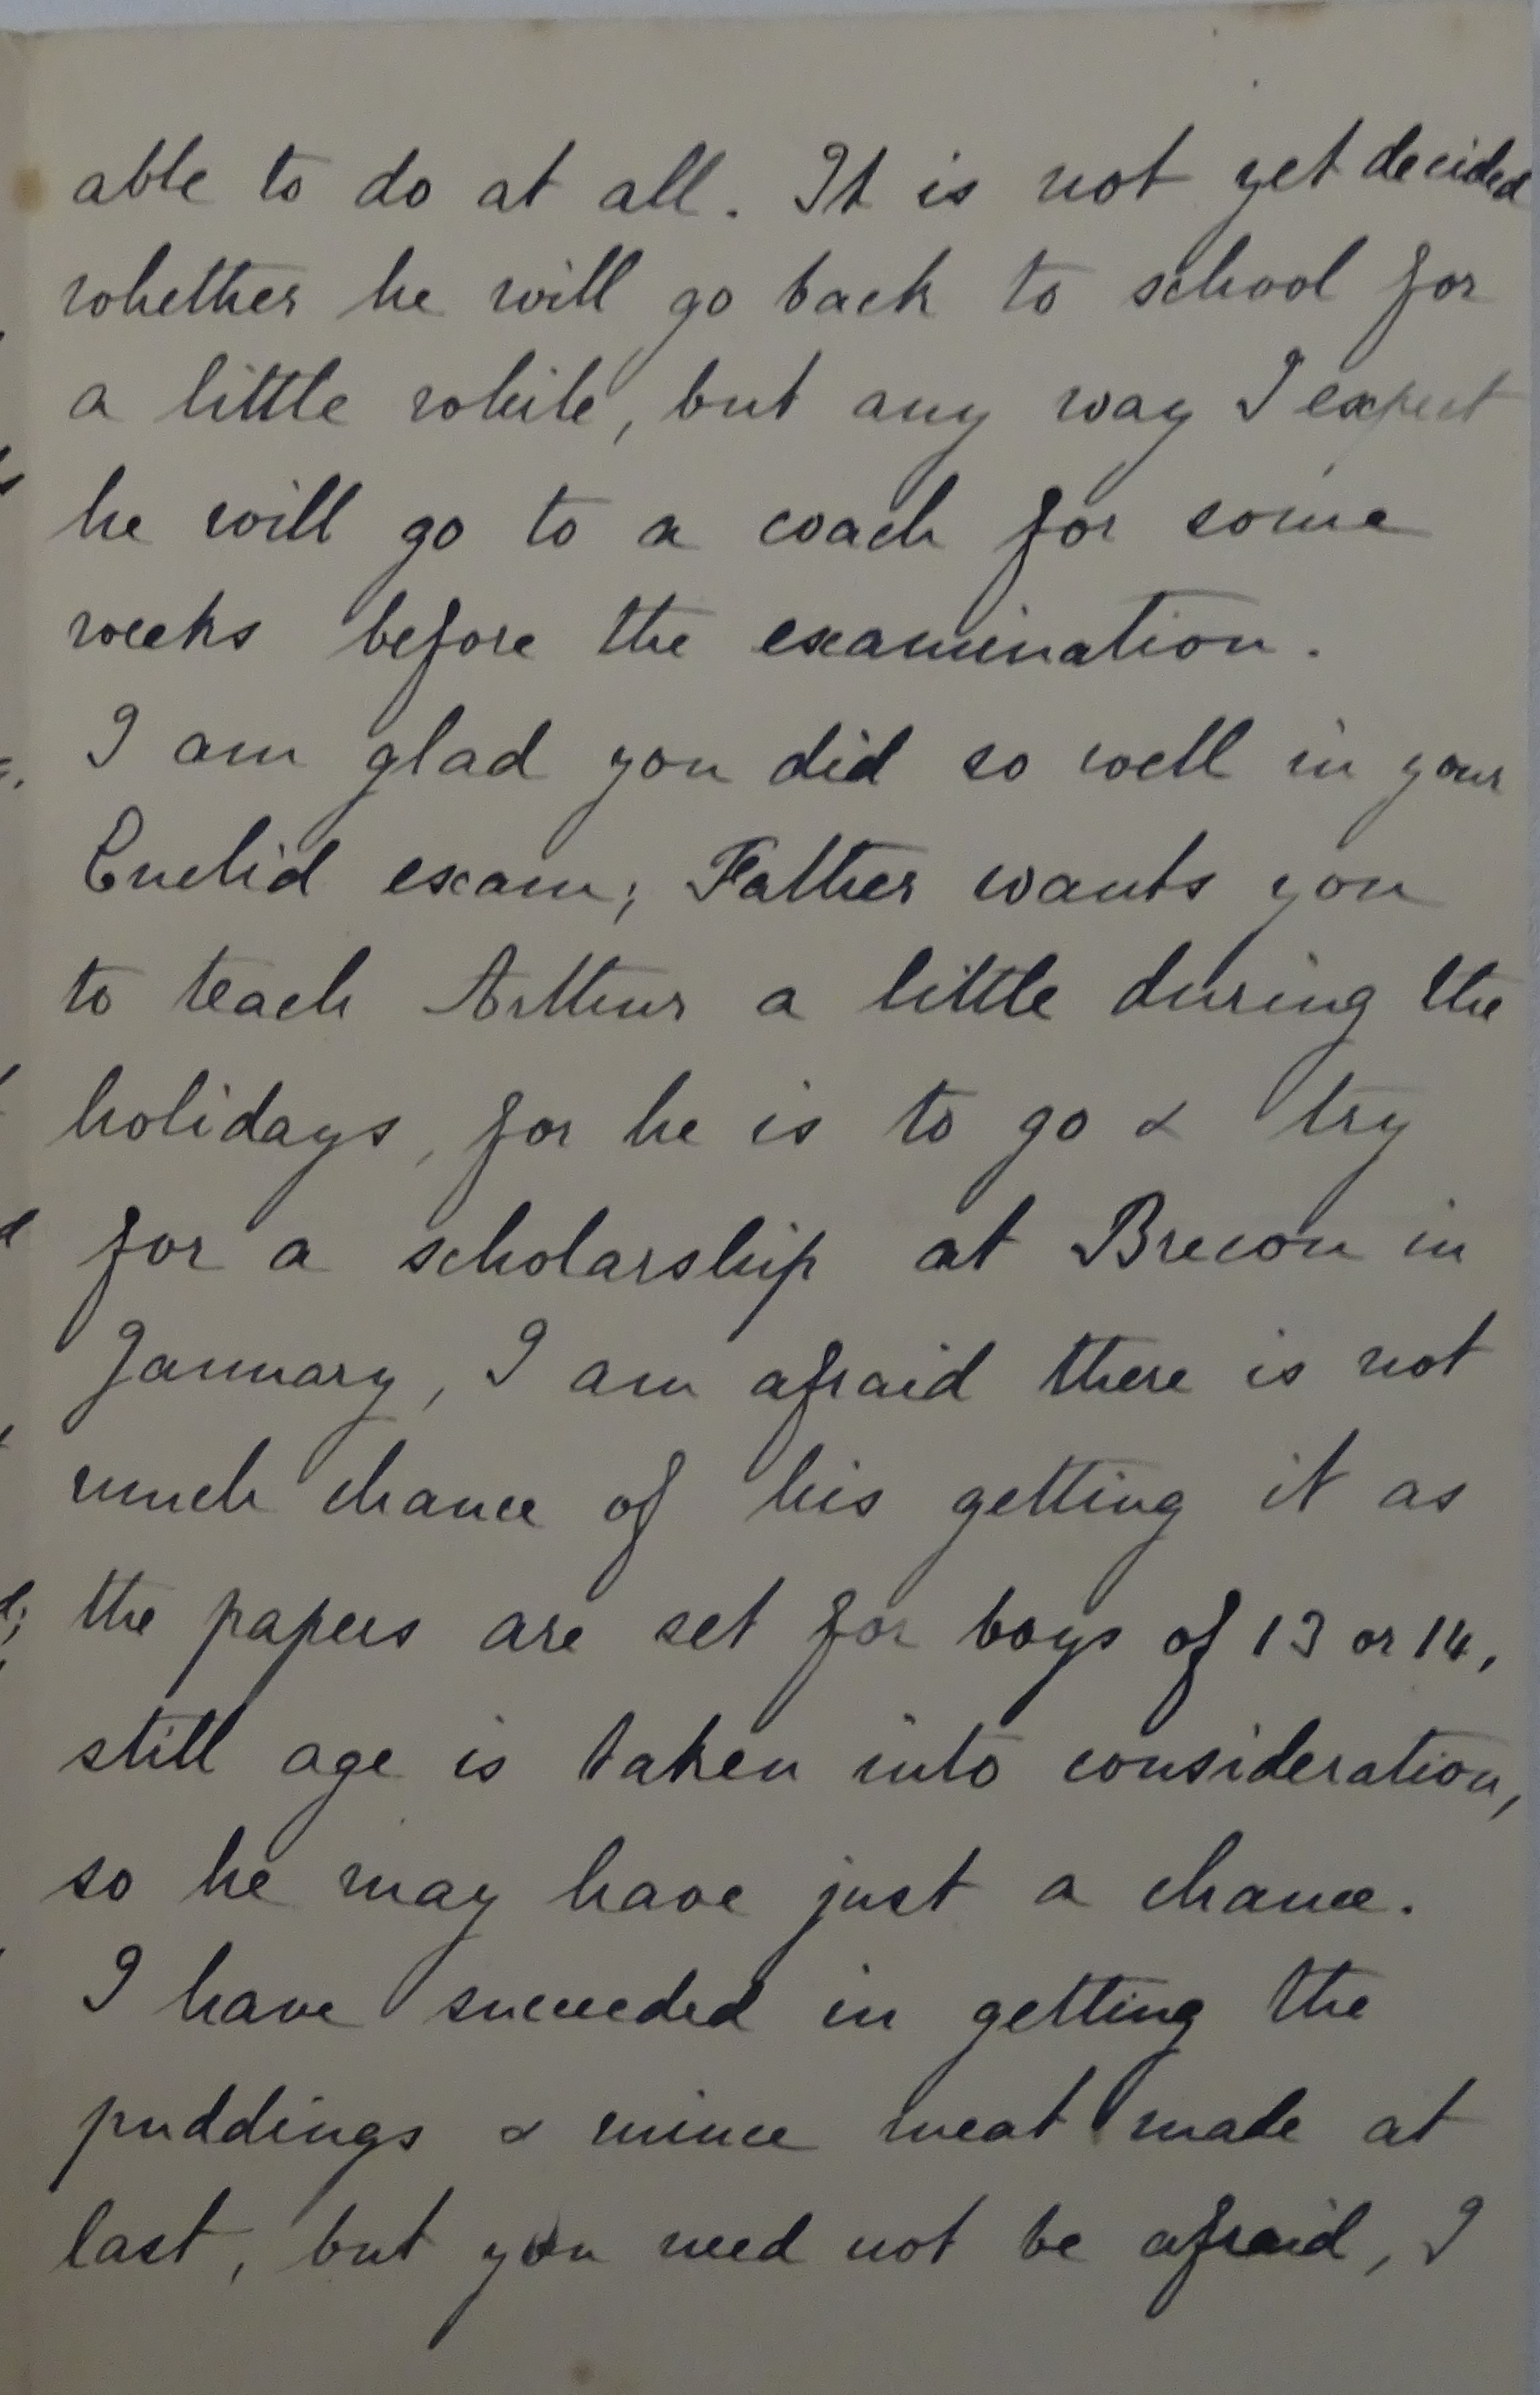 able to do at all. It is not yet decided
whether he will go back to school for
a little while, but any way I expect
he will go to a coach for some
weeks before the examination.
I am glad you did so well in your
Euclid exam; Father wants you
to teach Arthur a little during the
holidays, for he is to go & try
for a scholarship at Brecon in
January, I am afraid there is not
much chance of his getting it as
the papers are set for boys of 13 or 14,
still age is taken into consideration,
so he may have just a chance.
I have succeeded in getting the
puddings & mince meat made at
last, but you need not be afraid, I